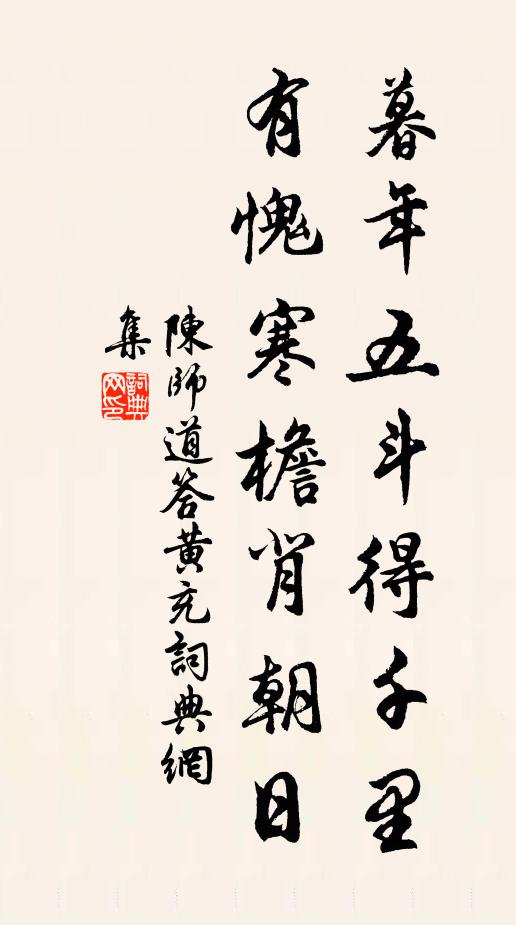 暮年五斗得千里
有愧寒檐背朝日
陳師道答黄充詞典網
集
詞典
网印